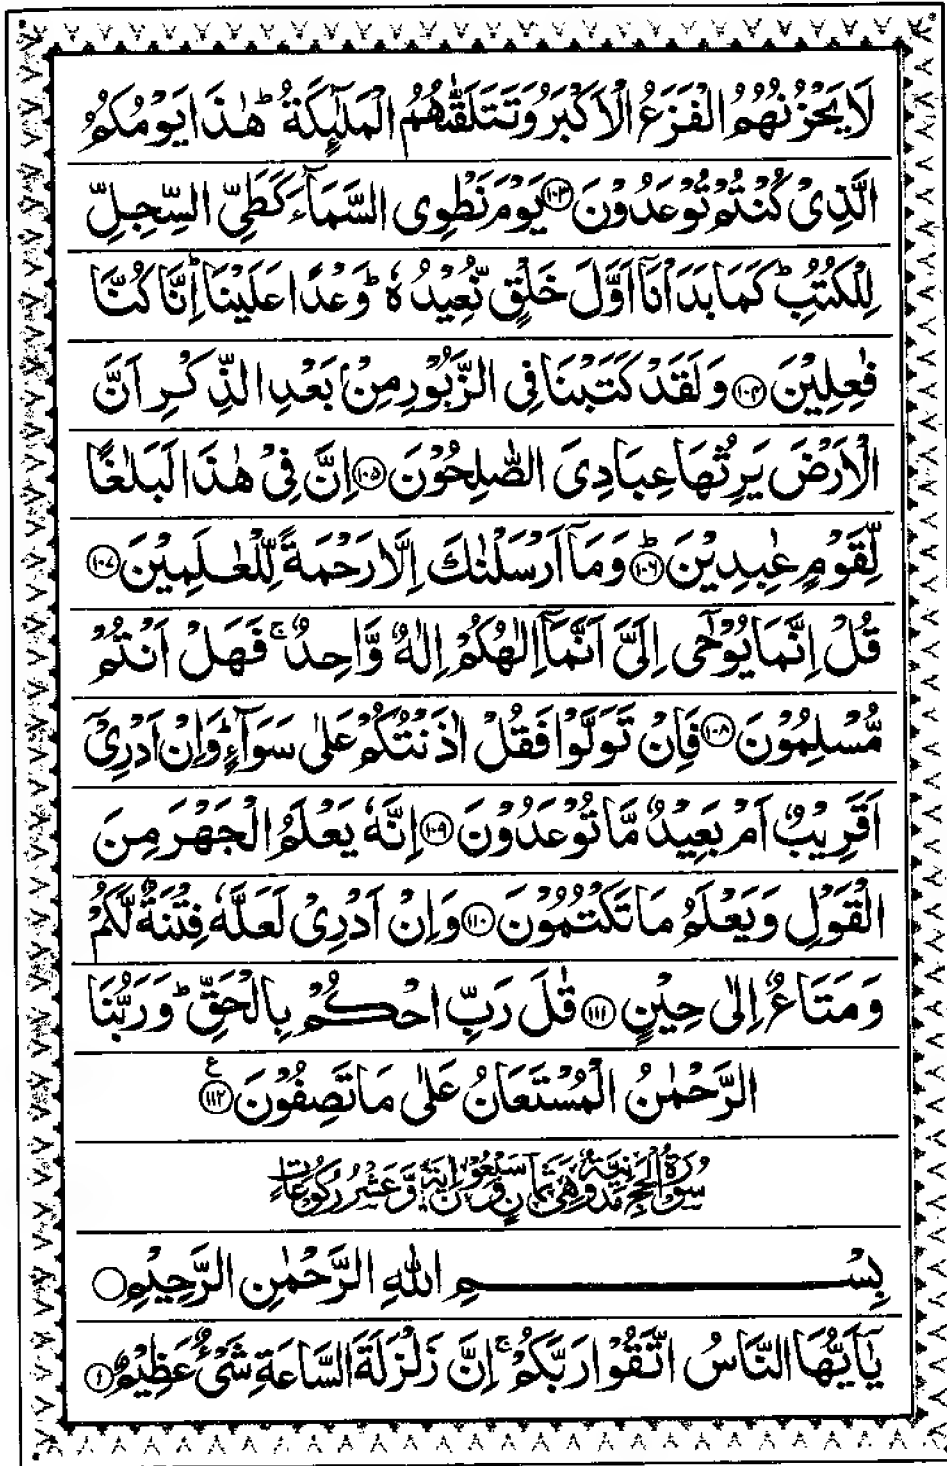 لَا يَحْزُنُهُمُ الْفَزَعُ الْاَكْبَرُ وَتَتَلَقّٰىهُمُ الْمَلٰٓئِكَةُ ؕ هٰذَا يَوْمُكُمُ
الَّذِىْ كُنْتُمْ تُوْعَدُوْنَ ﴿۱۰۳﴾ يَوْمَ نَطْوِى السَّمَآءَ كَطَىِّ السِّجِلِّ
لِلْكُتُبِ ؕ كَمَا بَدَاْنَاۤ اَوَّلَ خَلْقٍ نُّعِيْدُهٗ ؕ وَعْدًا عَلَيْنَا ؕ اِنَّا كُنَّا
فٰعِلِيْنَ ﴿۱۰۴﴾ وَلَقَدْ كَتَبْنَا فِى الزَّبُوْرِ مِنْۢ بَعْدِ الذِّكْرِ اَنَّ
الْاَرْضَ يَرِثُهَا عِبَادِىَ الصّٰلِحُوْنَ ﴿۱۰۵﴾ اِنَّ فِىْ هٰذَا لَبَلٰغًا
لِّقَوْمٍ عٰبِدِيْنَ ؕ ﴿۱۰۶﴾ وَمَاۤ اَرْسَلْنٰكَ اِلَّا رَحْمَةً لِّلْعٰلَمِيْنَ ﴿۱۰۷﴾
قُلْ اِنَّمَا يُوْحٰۤى اِلَىَّ اَنَّمَاۤ اِلٰهُكُمْ اِلٰهٌ وَّاحِدٌ ۚ فَهَلْ اَنْتُمْ
مُّسْلِمُوْنَ ﴿۱۰۸﴾ فَاِنْ تَوَلَّوْا فَقُلْ اٰذَنْتُكُمْ عَلٰى سَوَآءٍ ؕ وَاِنْ اَدْرِىْۤ
اَقَرِيْبٌ اَمْ بَعِيْدٌ مَّا تُوْعَدُوْنَ ﴿۱۰۹﴾ اِنَّهٗ يَعْلَمُ الْجَهْرَ مِنَ
الْقَوْلِ وَيَعْلَمُ مَا تَكْتُمُوْنَ ﴿۱۱۰﴾ وَاِنْ اَدْرِىْ لَعَلَّهٗ فِتْنَةٌ لَّكُمْ
وَمَتَاعٌ اِلٰى حِيْنٍ ﴿۱۱۱﴾ قٰلَ رَبِّ احْكُمْ بِالْحَقِّ ؕ وَرَبُّنَا
الرَّحْمٰنُ الْمُسْتَعَانُ عَلٰى مَا تَصِفُوْنَ ﴿۱۱۲﴾ ع
سُوْرَةُ الْحَجِّ مَدَنِيَّةٌ وَّهِىَ ثَمَانٍ وَّسَبْعُوْنَ اٰيَةً وَّعَشْرُ رُكُوْعَاتٍ
بِسْمِ اللّٰهِ الرَّحْمٰنِ الرَّحِيْمِ
يٰۤاَيُّهَا النَّاسُ اتَّقُوْا رَبَّكُمْ ۚ اِنَّ زَلْزَلَةَ السَّاعَةِ شَىْءٌ عَظِيْمٌ ﴿۱﴾